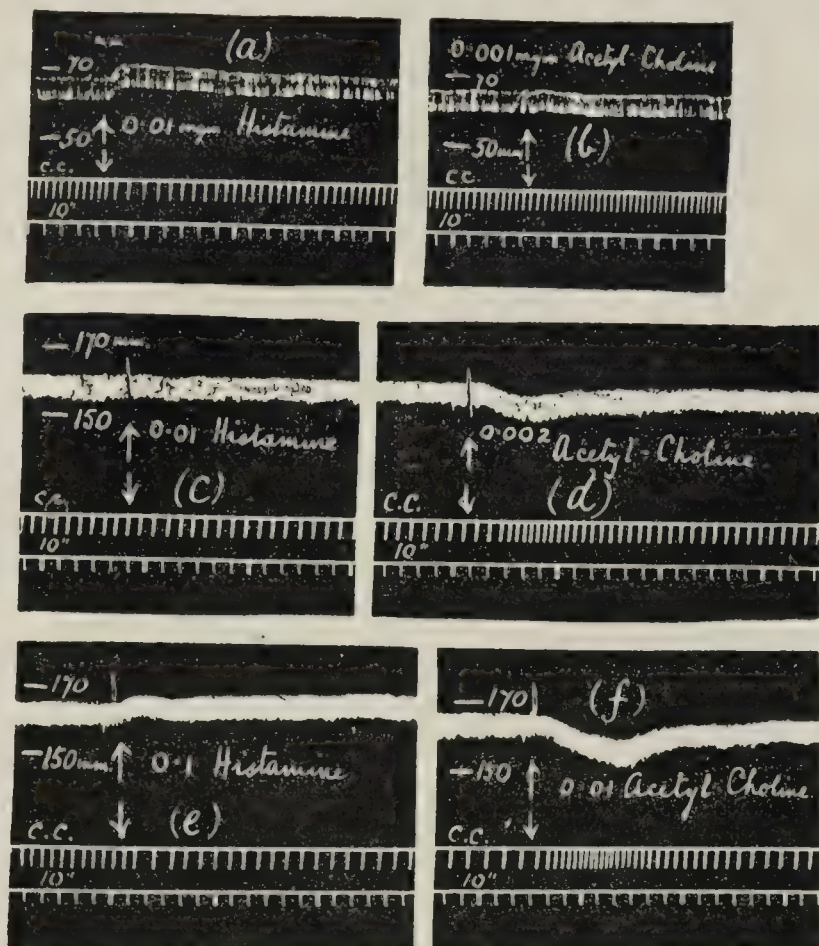 (a)
— 70
— 50 0.01 mgm Histamine
c.c.
10"
0.001 mgm Acetyl Choline
— 70
— 50 mm (b)
c.c
10"
— 170 mm
— 150 0.01 Histamine
(c)
c.c.
10"
0.002 Acetyl-Choline
C.C. (d)
10"
— 170
— 150 mm 0.1 Histamine
C.C. (e)
10"
— 170 (f)
— 150 0.01 Acetyl Choline
C.C.
10"